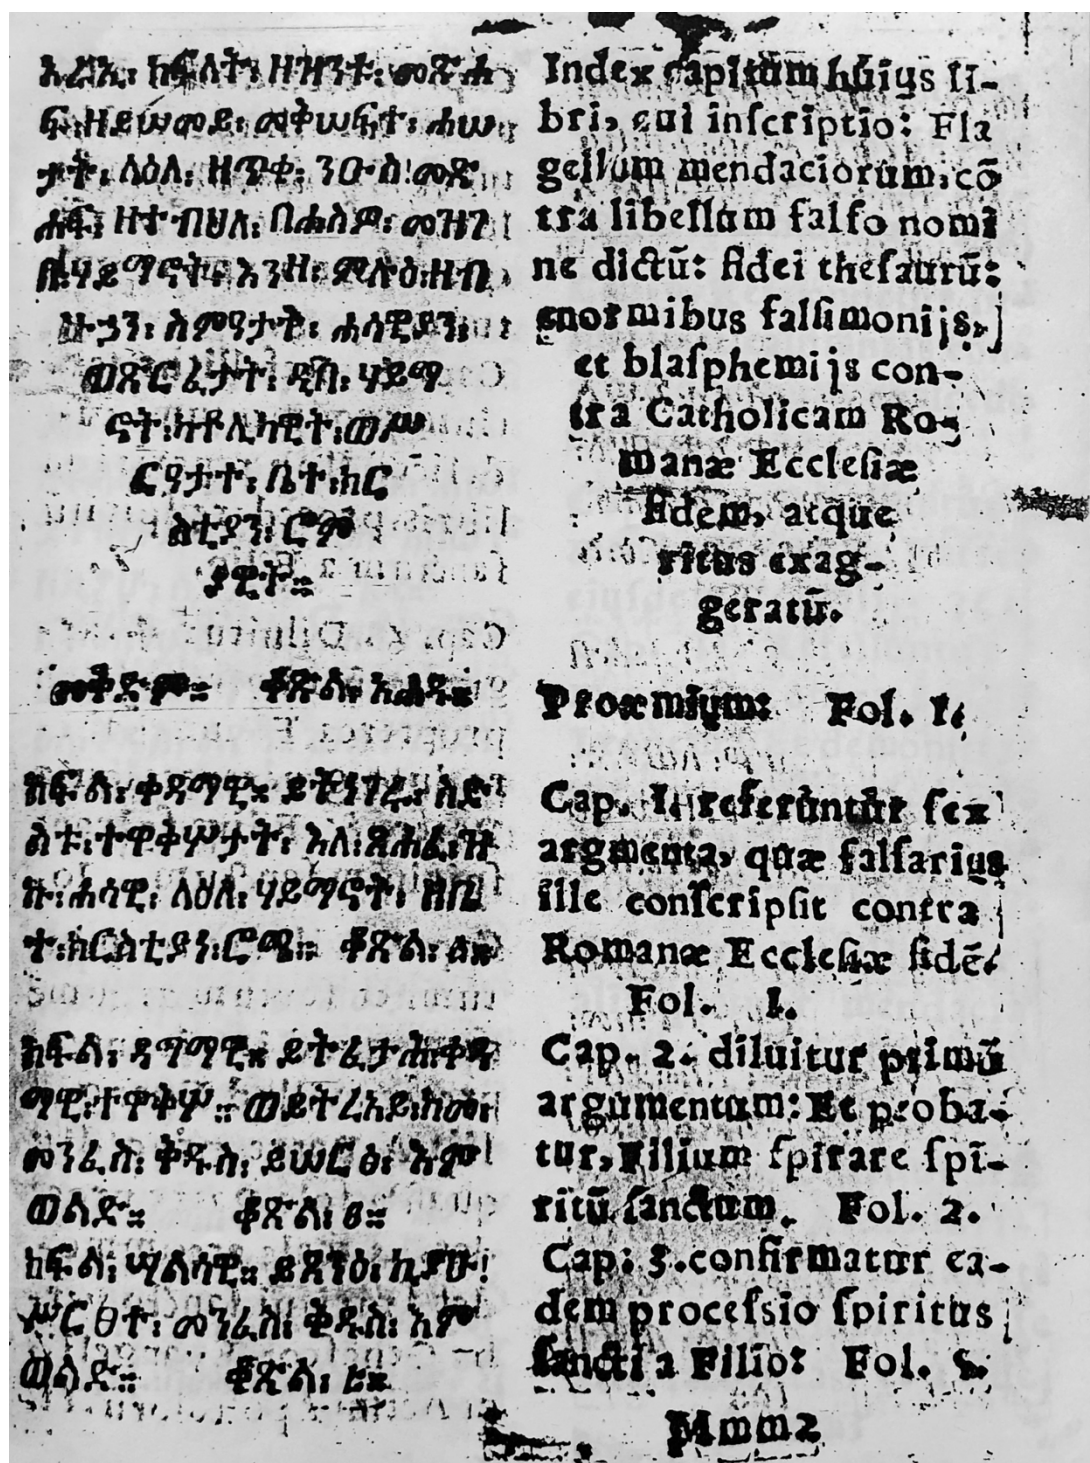 ፍ፡ዘይሠመይ፡ መቅሠፍተ፡ ሐሠ
ታት፡ ላዕለ፡ ዘጥቀ፡ ንኡስ፡ መጽ
ሐፍ፡ ዘተብህለ፡ በሐሰት፡ መዝገ
በ፡ሃይማኖት፡ እንዘ፡ ምሉዕ፡ዘብ
ዙኃን፡ ስምዓታት፡ ሐሳዊያን፡
ወጽርፈታት፡ ዲበ፡ ሃይማ
ኖት፡ካቶሊካዊት፡ወሥ
ርዓታተ፡ ቤተ፡ክር
ስቲያን፡ ሮም
ያዊት።
መቅድም። ቆጽል፡ አሐዱ።
ክፍል፡ ቀዳማዊ። ይትነገሩ፡ ስድ
ስቱ፡ተዋቅሦታት፡ እለ፡ጸሐፈ፡ዝ
ኩ፡ሐሳዊ፡ ላዕለ፡ ሃይማኖት፡ ዘቤ
ተ፡ክርስቲያን፡ሮሜ። ቆጽል፡ ፩።
ክፍል፡ ዳግማዊ። ይትፈታሕ፡ቀዳ
ማዊ፡ተዋቅሦ። ወይትረአይ፡ከመ፡
መንፈስ፡ ቅዱስ፡ ይሠርፅ፡ እም
ወልድ። ቆጽል፡ ፪።
ክፍል፡ ሣልሳዊ። ይጸንዕ፡ ኪያሁ፡
ሥርፀተ፡ መንፈስ፡ ቅዱስ፡ እም
ወልድ። ቆጽል፡ ፭።
Index capitum huius li-
bri, cui inſcriptio: Fla
gellum mendaciorum, cō
tra libellum falſo nomi
ne dictū: fidei theſaurū:
enormibus falſimonijs,
et blaſphemijs con-
tra Catholicam Ro-
manæ Eccleſiæ
fidem, atque
ritus exag-
geratū.
Proæmium: Fol. 1.
Cap. 1. referuntur ſex
argmenta, quæ falſarius
ille conſcripſit contra
Romanæ Eccleſiæ fidē.
Fol. 1.
Cap. 2. diluitur primū
argumentum: Et proba-
tur, Filium ſpirare ſpi-
ritū ſanctum. Fol. 2.
Cap: 3. confirmatur ea-
dem proceſsio ſpiritus
ſancti a Filio: Fol. 5.
Mmm2